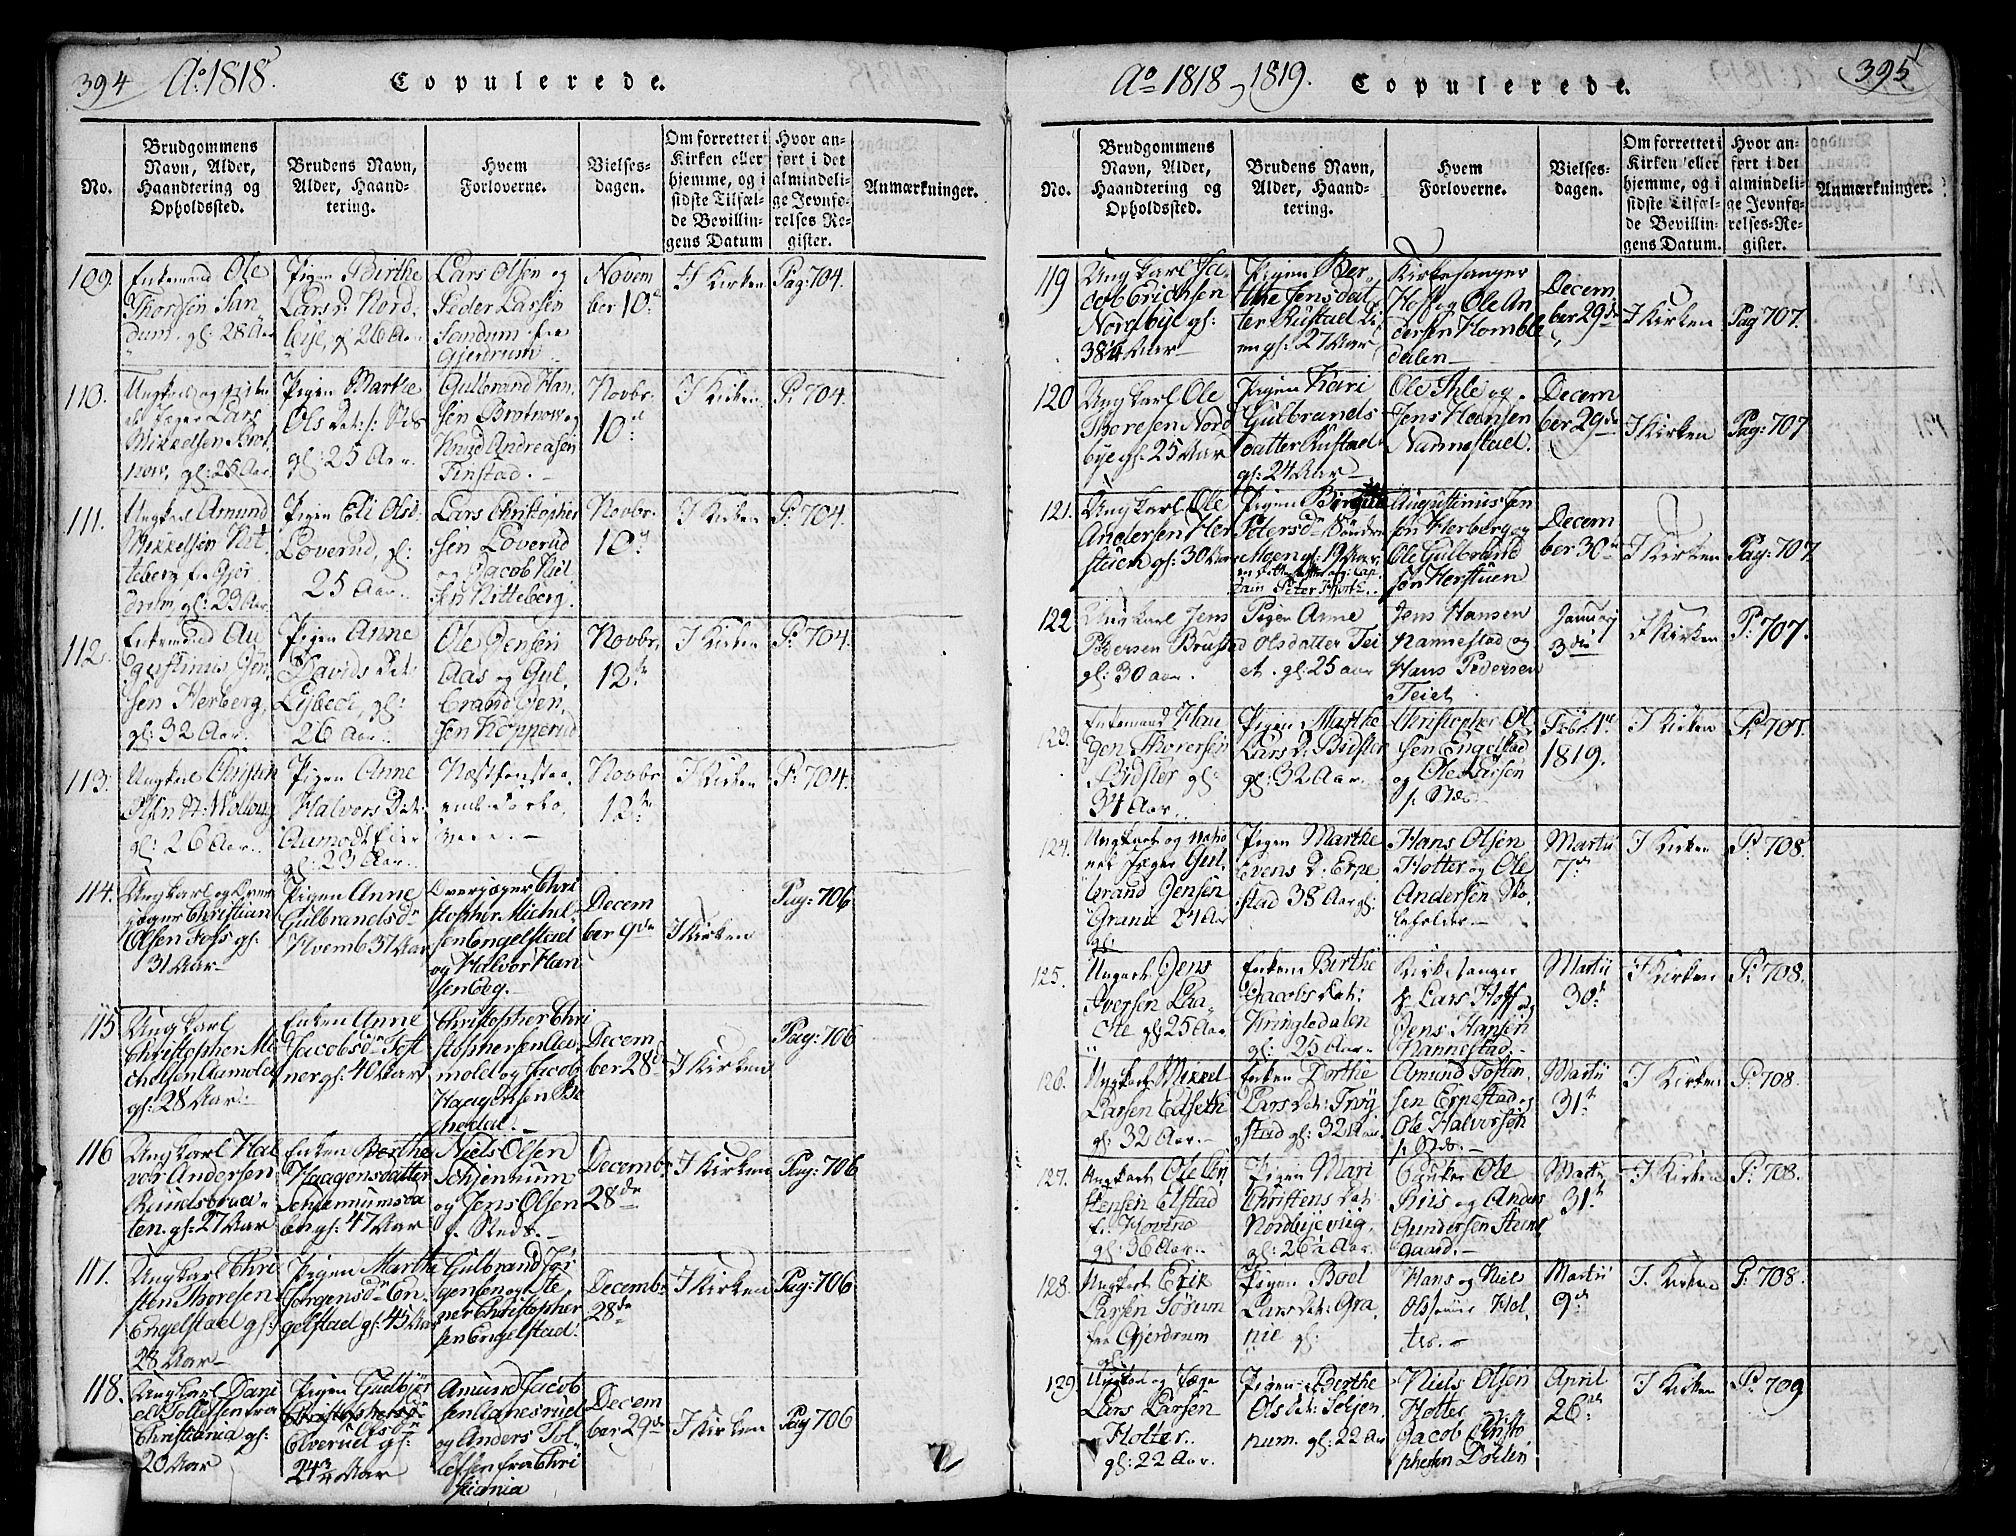 394 Ao 1818. Copulerede.
No.
Brudgommens
Navn, Alder,
Haandtering og
Opholdssted.
Brudens Navn,
Alder, Haand-
tering.
Hvem
Forloverne.
Vielses-
dagen.
Om forrettet i
Kirken eller
hjemme, og i
sidste Tilfæl-
de Bevillin-
gens Datum
Hvor an-
ført i det
almindeli-
ge Jevnfø-
relses Re-
gister.
Anmærkninger.
109.
Enkemand Ole
Thoresen San
dum, gl: 28 Aar
Pigen Birthe
Lars D. Nord
bye, gl 26 Aar
Lars Olsen og
Peder Larsen
Sandum fra
Gjerdrum
Novem
ber 10de
I Kirken
Pag: 704.
110.
Jæger Lars
Mikkelsen Brot
now, gl: 25 Aar
Pigen Marthe
Ols Dat: /: Sts
gl: 25 Aar.
Gulbrand Han
sen Brotnow og
Knud Andreasen
Finstad.
Novbr.
10de
I Kirken
P: 704.
111.
Ungkarl Amund
Mikkelsen Nit
teberg fra Gjer
drum, gl: 23 Aar
Pigen Eli Olsd
Loverud, gl:
25 Aar.
Lars Christopher
sen Loverud
og Jacob Niel
sen Nitteberg.
Novbr.
10de
I Kirken
P: 704.
112.
Enkemand Au
gustinus Jen
sen Herberg,
gl: 32 Aar.
Pigen Anne
Davids Dat:
Lysbech, gl:
26 Aar.
Ole Jensen
Aas og Gul
brand Jen
sen Kopperud
Novbr.
12te
I Kirken
P: 704.
113.
Ungkarl Christen
Olsen St: Wollaug
gl: 26 Aar.
Pigen Anne
Halvors Dat:
Aamodt Eier
gl: 23 Aar.
Næstforestaa
ende Forlo
vere.
Novbr.
12te
I Kirken
P: 704.
114.
Ungkarl og Dver
jæger Christian
Olsen Foss gl:
31 Aar
Pigen Anne
Gulbrandsdr
Hvemb 37 Aar
Dverjæger Chri
stopher Michel
sen Engelstad
og Halvor Han
sen Berg.
Decem
ber 9de
I Kirken
Pag: 706
115
Ungkarl
Christopher Mi
chelsen Aamold
gl: 28 Aar.
Enken Anne
Jacobsdr Toft
ner gl: 40 Aar
Christopher Chri
stophersen Aa
mold og Jacob
Haagensen Bø
hedal.
Decem
ber 28de
I Kirken
Pag: 706
116
Ungkarl Hal
vor Andersen
Ruudsbraa
ten. gl: 27 Aar
Enken Berthe
Haagensdatter
Schiennumsva
en gl: 47 Aar
Niels Olsen
Schiennum
og Jens Olsen
/. Steds.
Decembr.
28de
I Kirken
Pag: 706
117.
Ungkarl Chri
sten Thoresen
Engelstad gl:
28 Aar
Pigen Marthe
Jørgensdr En
gelstad gl: 45 Aar
Gulbrand Jør
gensen og Ste
ner Christopher
sen Engelstad.
Decembr.
28de
I Kirken
Pag: 706
118.
Ungkarl Dani
el Tollefsen fra
Christiania gl:
20 Aar
Pigen Gudbjør
Christophersdr
Olsdr
Elverud gl:
24¾ Aar
Amund Jacob
sen Aanesrud
og Anders Tol
lefsen fra Chri
stiania
Decem
ber 29de
I Kirken
Pag 706
Ao 1818 - 1819. Copulerede. 395
No.
Brudgommens
Navn, Alder,
Haandtering og
Opholdssted.
Brudens Navn,
Alder, Haand-
tering.
Hvem
Forloverne.
Vielses-
dagen.
Om forrettet i
Kirken eller
hjemme, og i
sidste Tilfæl-
de Bevillin-
gens Datum.
Hvor an-
ført i det
almindeli-
ge Jevnfø-
relses-Re-
gister.
Anmærkninger.
119
Ungkarl Ja
cob Erichsen
Nordbye gl:
38¼ Aar
Pigen Ber
the Jensdat
ter Rustad Ei
en gl: 27 Aar
Kirkesanger
Hoff og Ole An
dersen Homble
dalen
Decem
ber 29de
I Kirken
Pag 707.
120
Ungkarl Ole
Thoresen Nord
bye gl: 25 Aar
Pigen Kari
Gulbrands
datter Rustad
gl: 24 Aar
Ole Ihle og
Jens Hansen
Nannestad.
Decem
ber 29de
I Kirken
Pag: 707
121.
Ungkarl Ole
Andersen Her
stuen gl: 30 Aar
Pigen Birgitte
Petersdr Søndre
Moen gl: 19 Aar
Peter Hjorth.
Augustinus Jen
sen Herberg og
Ole Gulbrand
sen Herstuen
Decem
ber 30te
I Kirken
Pag: 707.
122
Ungkarl Jens
Pedersen Brustad
gl: 30 aar.
Pigen Anne
Olsdatter Tei
et. gl: 25 aar
Jens Hansen
Nannestad og
Hans Pedersen
Teiet
Januarj
3die
I Kirken
P: 707.
123.
Enkemand Haa
gen Thoresen
Bidsler gl:
34 Aar.
Pigen Marthe
Lars D: Bidsler
gl: 32 Aar.
Christopher Ol
sen Engelstad
og Ole Larsen
/. Steds
Febr. 4de
1819.
I Kirken
P. 707.
124.
Ungkarl og Natio
nal Jæger Gul
brand Jensen
Granie 24 Aar
gl:
Pigen Marthe
Evens D: Erpe
stad 38 Aar gl:
Hans Olsen
Holter og Ole
Andersen Sko
leholder
Martii
7de
I Kirken
P. 708.
125.
Ungkarl Jens
Iversen Laa
che gl: 25 Aar
Enken Birthe
Jacobs Dat:
Kringledalen
gl: 25 Aar.
Kirkesanger
Hr Lars Hoff og
Jens Hansen
Nannestad.
Martii
30te
I Kirken
P: 708.
126.
Ungkarl Mikkel
Larsen Eltseth
gl: 32 Aar.
Enken Dorthe
Lars Dat: Trøg
stad gl: 32 Aar
Amund Tosten
sen Erpestad og
Ole Halvorsen
/. Steds.
Martii
31te
I Kirken
P: 708.
127.
Ungkarl Ole Cri
stensen Elstad
fr. Hovind
gl: 36 Aar.
Pigen Mari
Christens Dat:
Nordbyevig,
gl: 26½ Aar.
Ole
Niis og Anders
Gundersen Steens
gaard.
Martii
31te
I Kirken
P: 708.
128.
Ungkarl Erik
Larsen Sørum
fra Gjerdrum
Pigen Boel
Lars Dat: Gra
nie gl:
Hans og Niels
Holter
Martii
9de
I. Kirken
P: 708.
129
Ungkarl og Jæger
Lars Larsen
Holter.
gl: 22 Aar.
Pigen Berthe
Ols Dat: Schjen
num. gl: 22 Aar
Niels Olsen
Holter og
Jacob Christo
phersen Døhlen
April
26de
I Kirken
P: 709